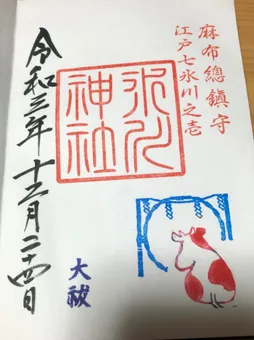 麻布總鎮守
江戸七氷川之壱
氷川
神社
大祓
令和三年十二月二十四日